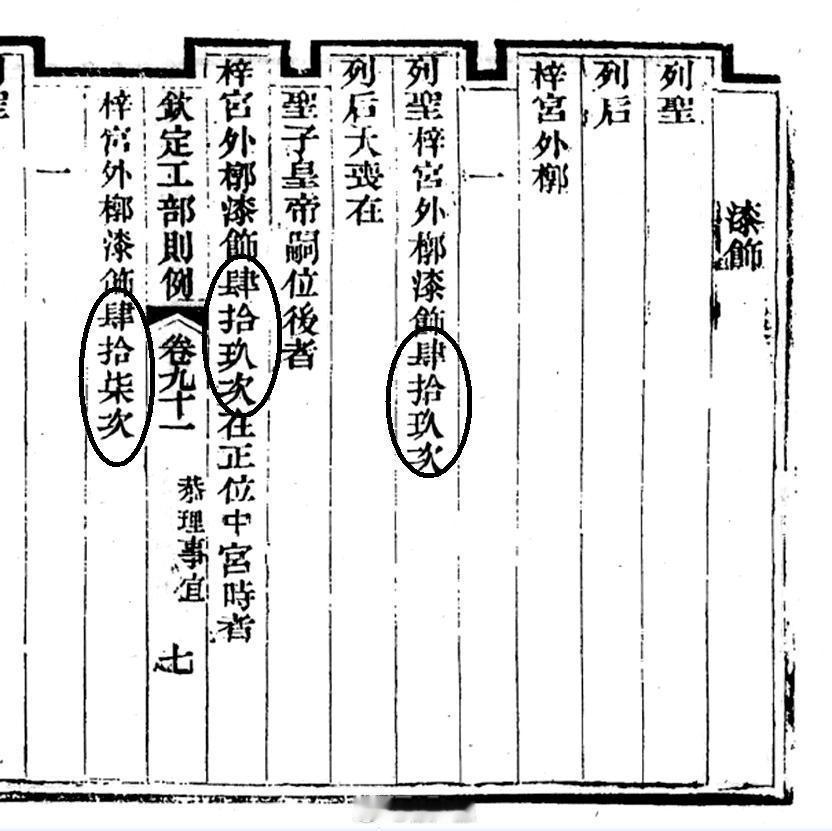 漆飾
列聖
列后
梓宮外槨
一
列聖梓宮外槨漆飾肆拾玖次
列后大喪在
聖子皇帝嗣位後者
梓宮外槨漆飾肆拾玖次在正位中宮時者
欽定工部則例 卷九十一 恭理事宜 七
梓宮外槨漆飾肆拾柒次
一
列聖